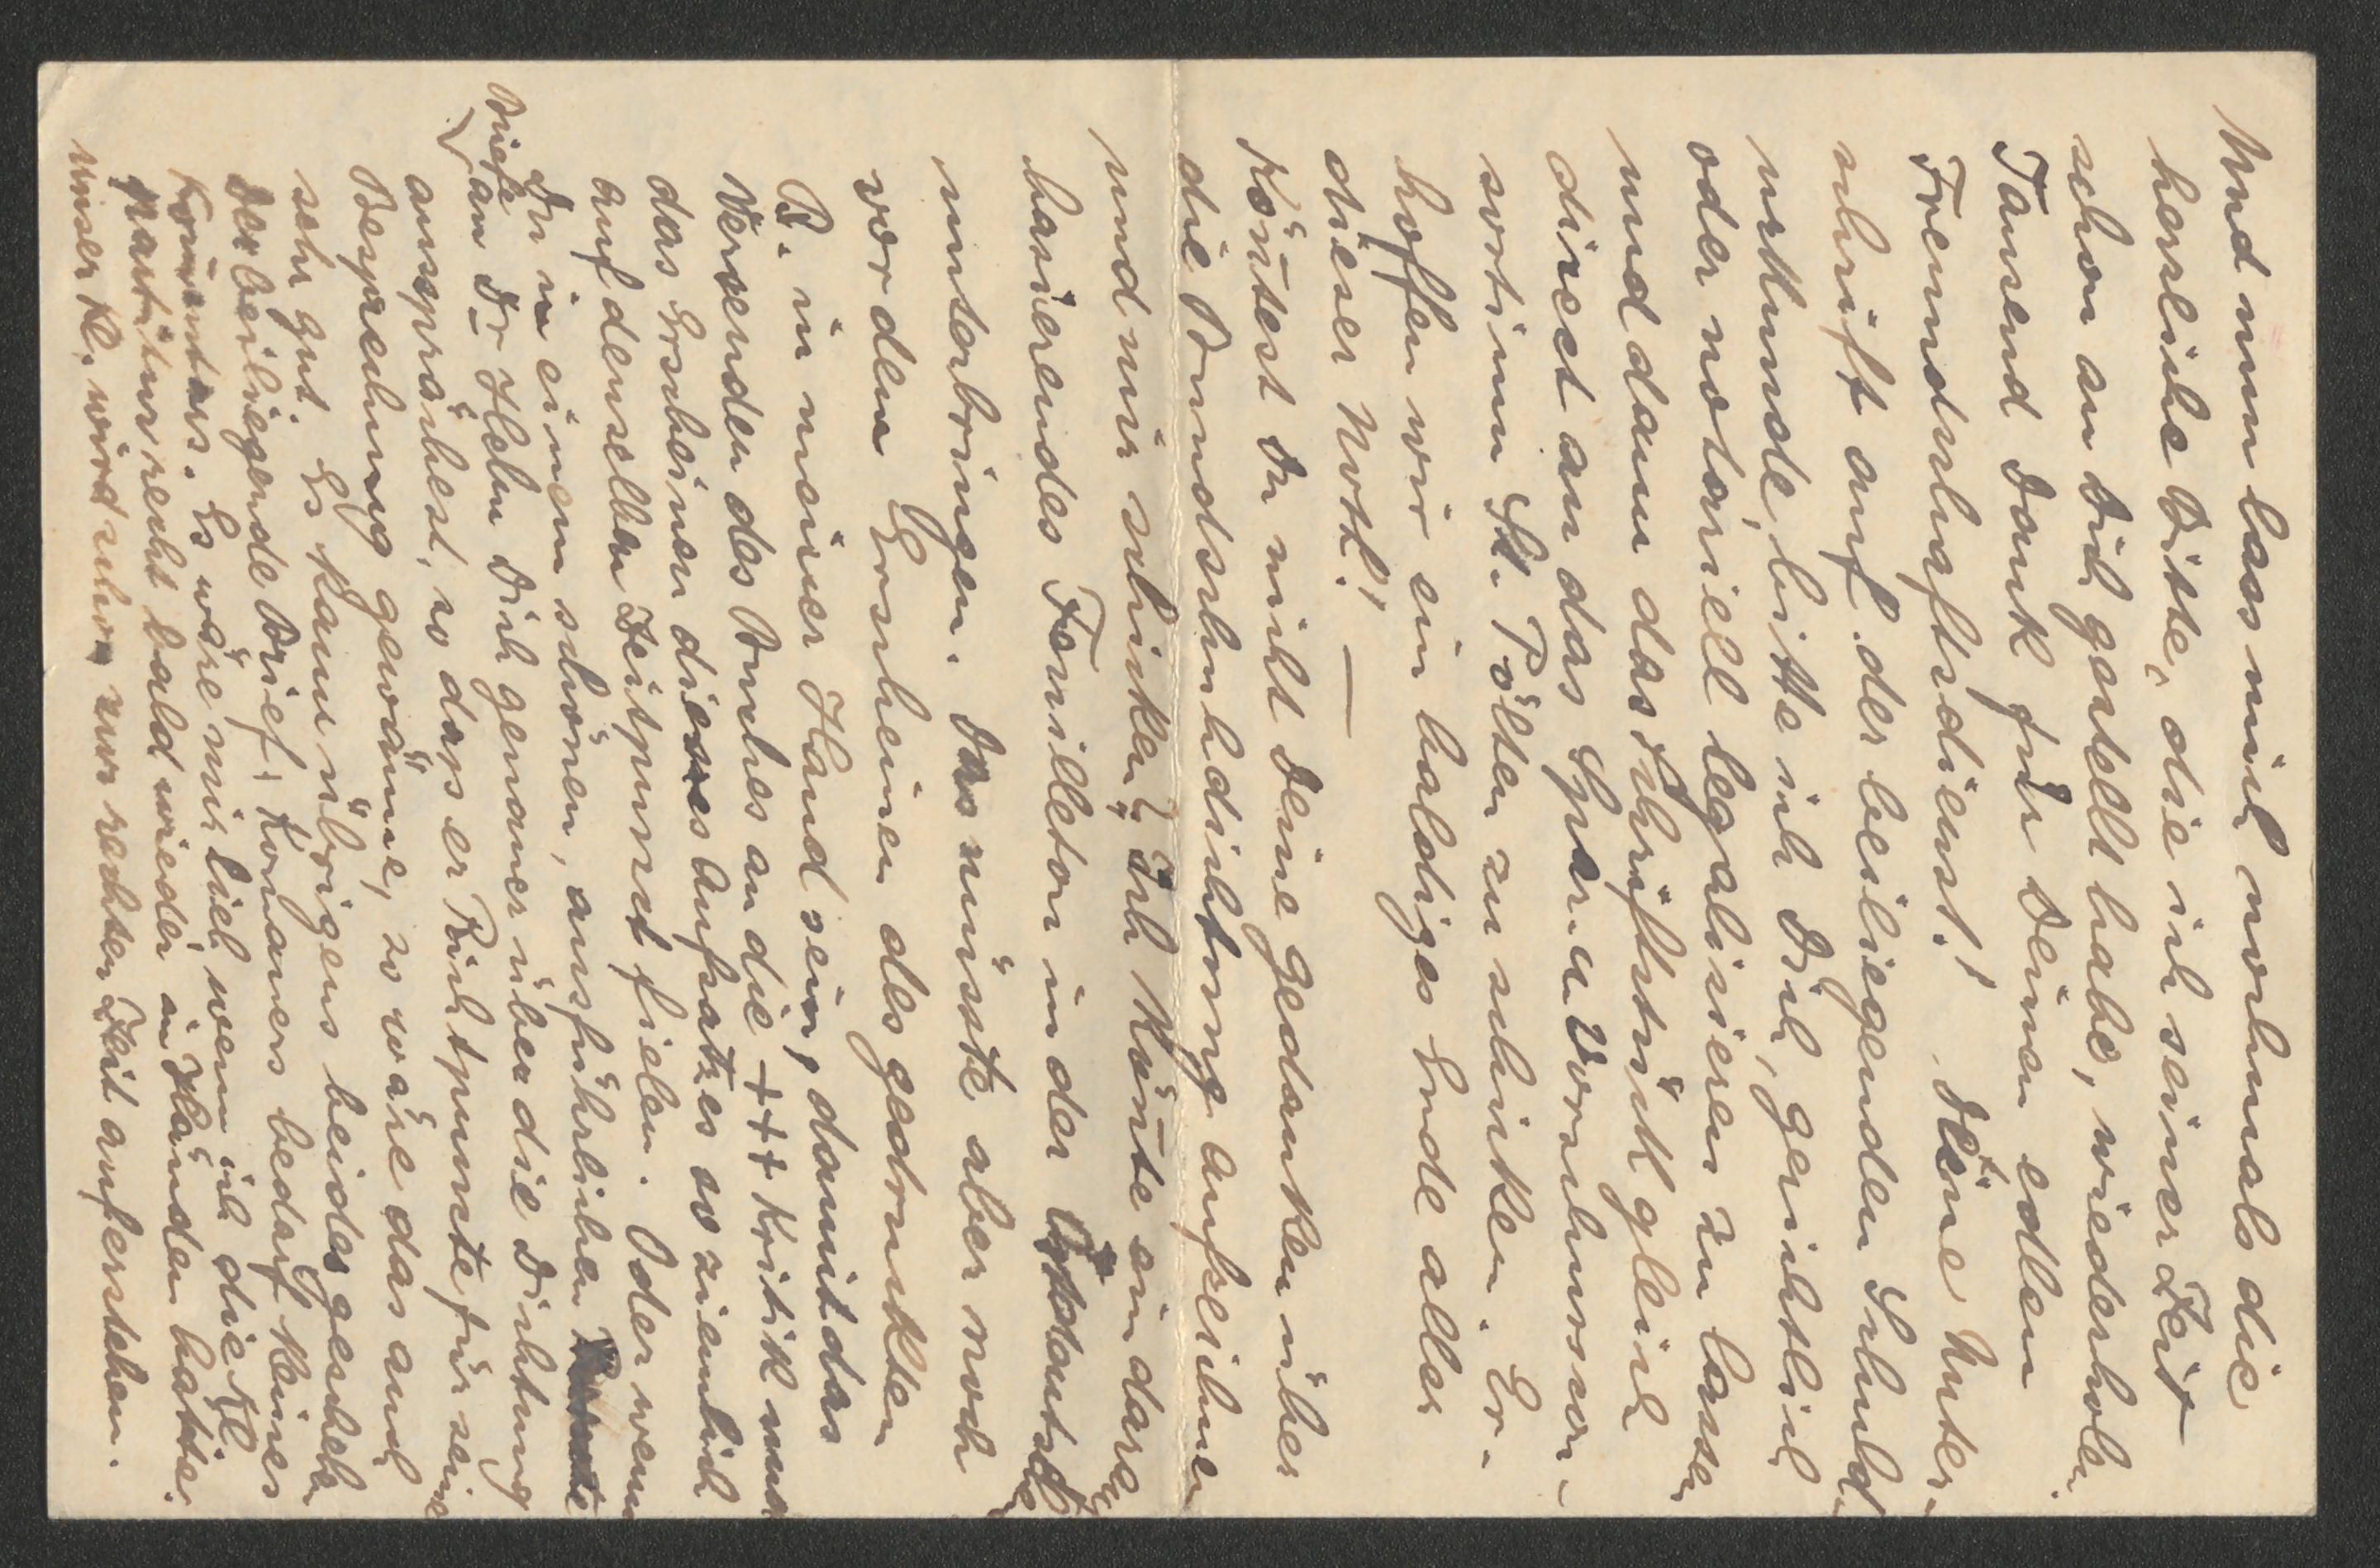 Und nun lass mich nochmals die
herzliche Bitte, die ich seiner Zeit
schon an Dich gestellt habe, wiederholen.
Tausend Dank für Deinen edlen
Freundschaftsdienst! Deine Unter-
schrift auf der beiliegenden Schuld-
urkunde, bitte ich Dich, gerichtlich
oder notäriell legalisieren zu lassen
und dann das Schriftstück gleich
direct an das Spar- u Vorschussor-
sortium St. Pölten zu schicken. Er-
hoffen wir ein baldiges Ende aller
dieser Noth! —
Kön̄test Du nicht Deine Gedanken über
die Brundschuhdichtung aufzeichnen
und mir schicken? Ich kön̄te ein darauf
basierendes Feuilleton in der
unterbringen. Das müsste aber noch
vor dem Erscheinen des gedruckten
B. in meiner Hand sein, damit das
Versenden des Buches an die +++ Kritik und
das Erscheinen dieses Aufsatzes so ziemlich
auf denselben Zeitpunct fielen. Oder wenn
Du in einem schönen, ausführlichen
Briefe an Dr Helm Dich genauer über die Dichtung
aussprächest, so dass er Richtpunkte für seine
Besprechung gewänne, so wäre das auch
sehr gut. Es kann übrigens beides geschehen
Der beiliegende Brief Konkaners bedarf keines
Kom̄entars. Es wäre mir lieb wenn ich die Kl.
Partitur recht bald wieder in Händen hätte.
Unser K. wird schon zur rechten Zeit auferstehen.